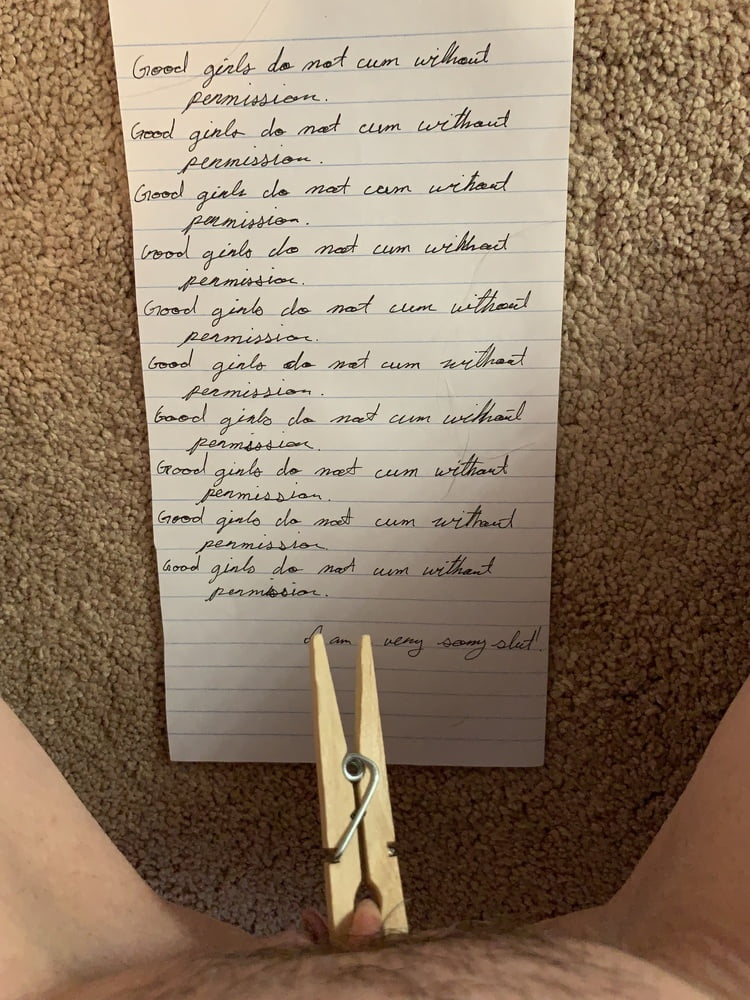 Good girls do not cum without
permission.
Good girls do not cum without
permission.
Good girls do not cum without
permission.
Good girls do not cum without
permission.
Good girls do not cum without
permission.
Good girls do not cum without
permission.
Good girls do not cum without
permission.
Good girls do not cum without
permission.
Good girls do not cum without
permission.
Good girls do not cum without
permission.
I am very sorry slut!